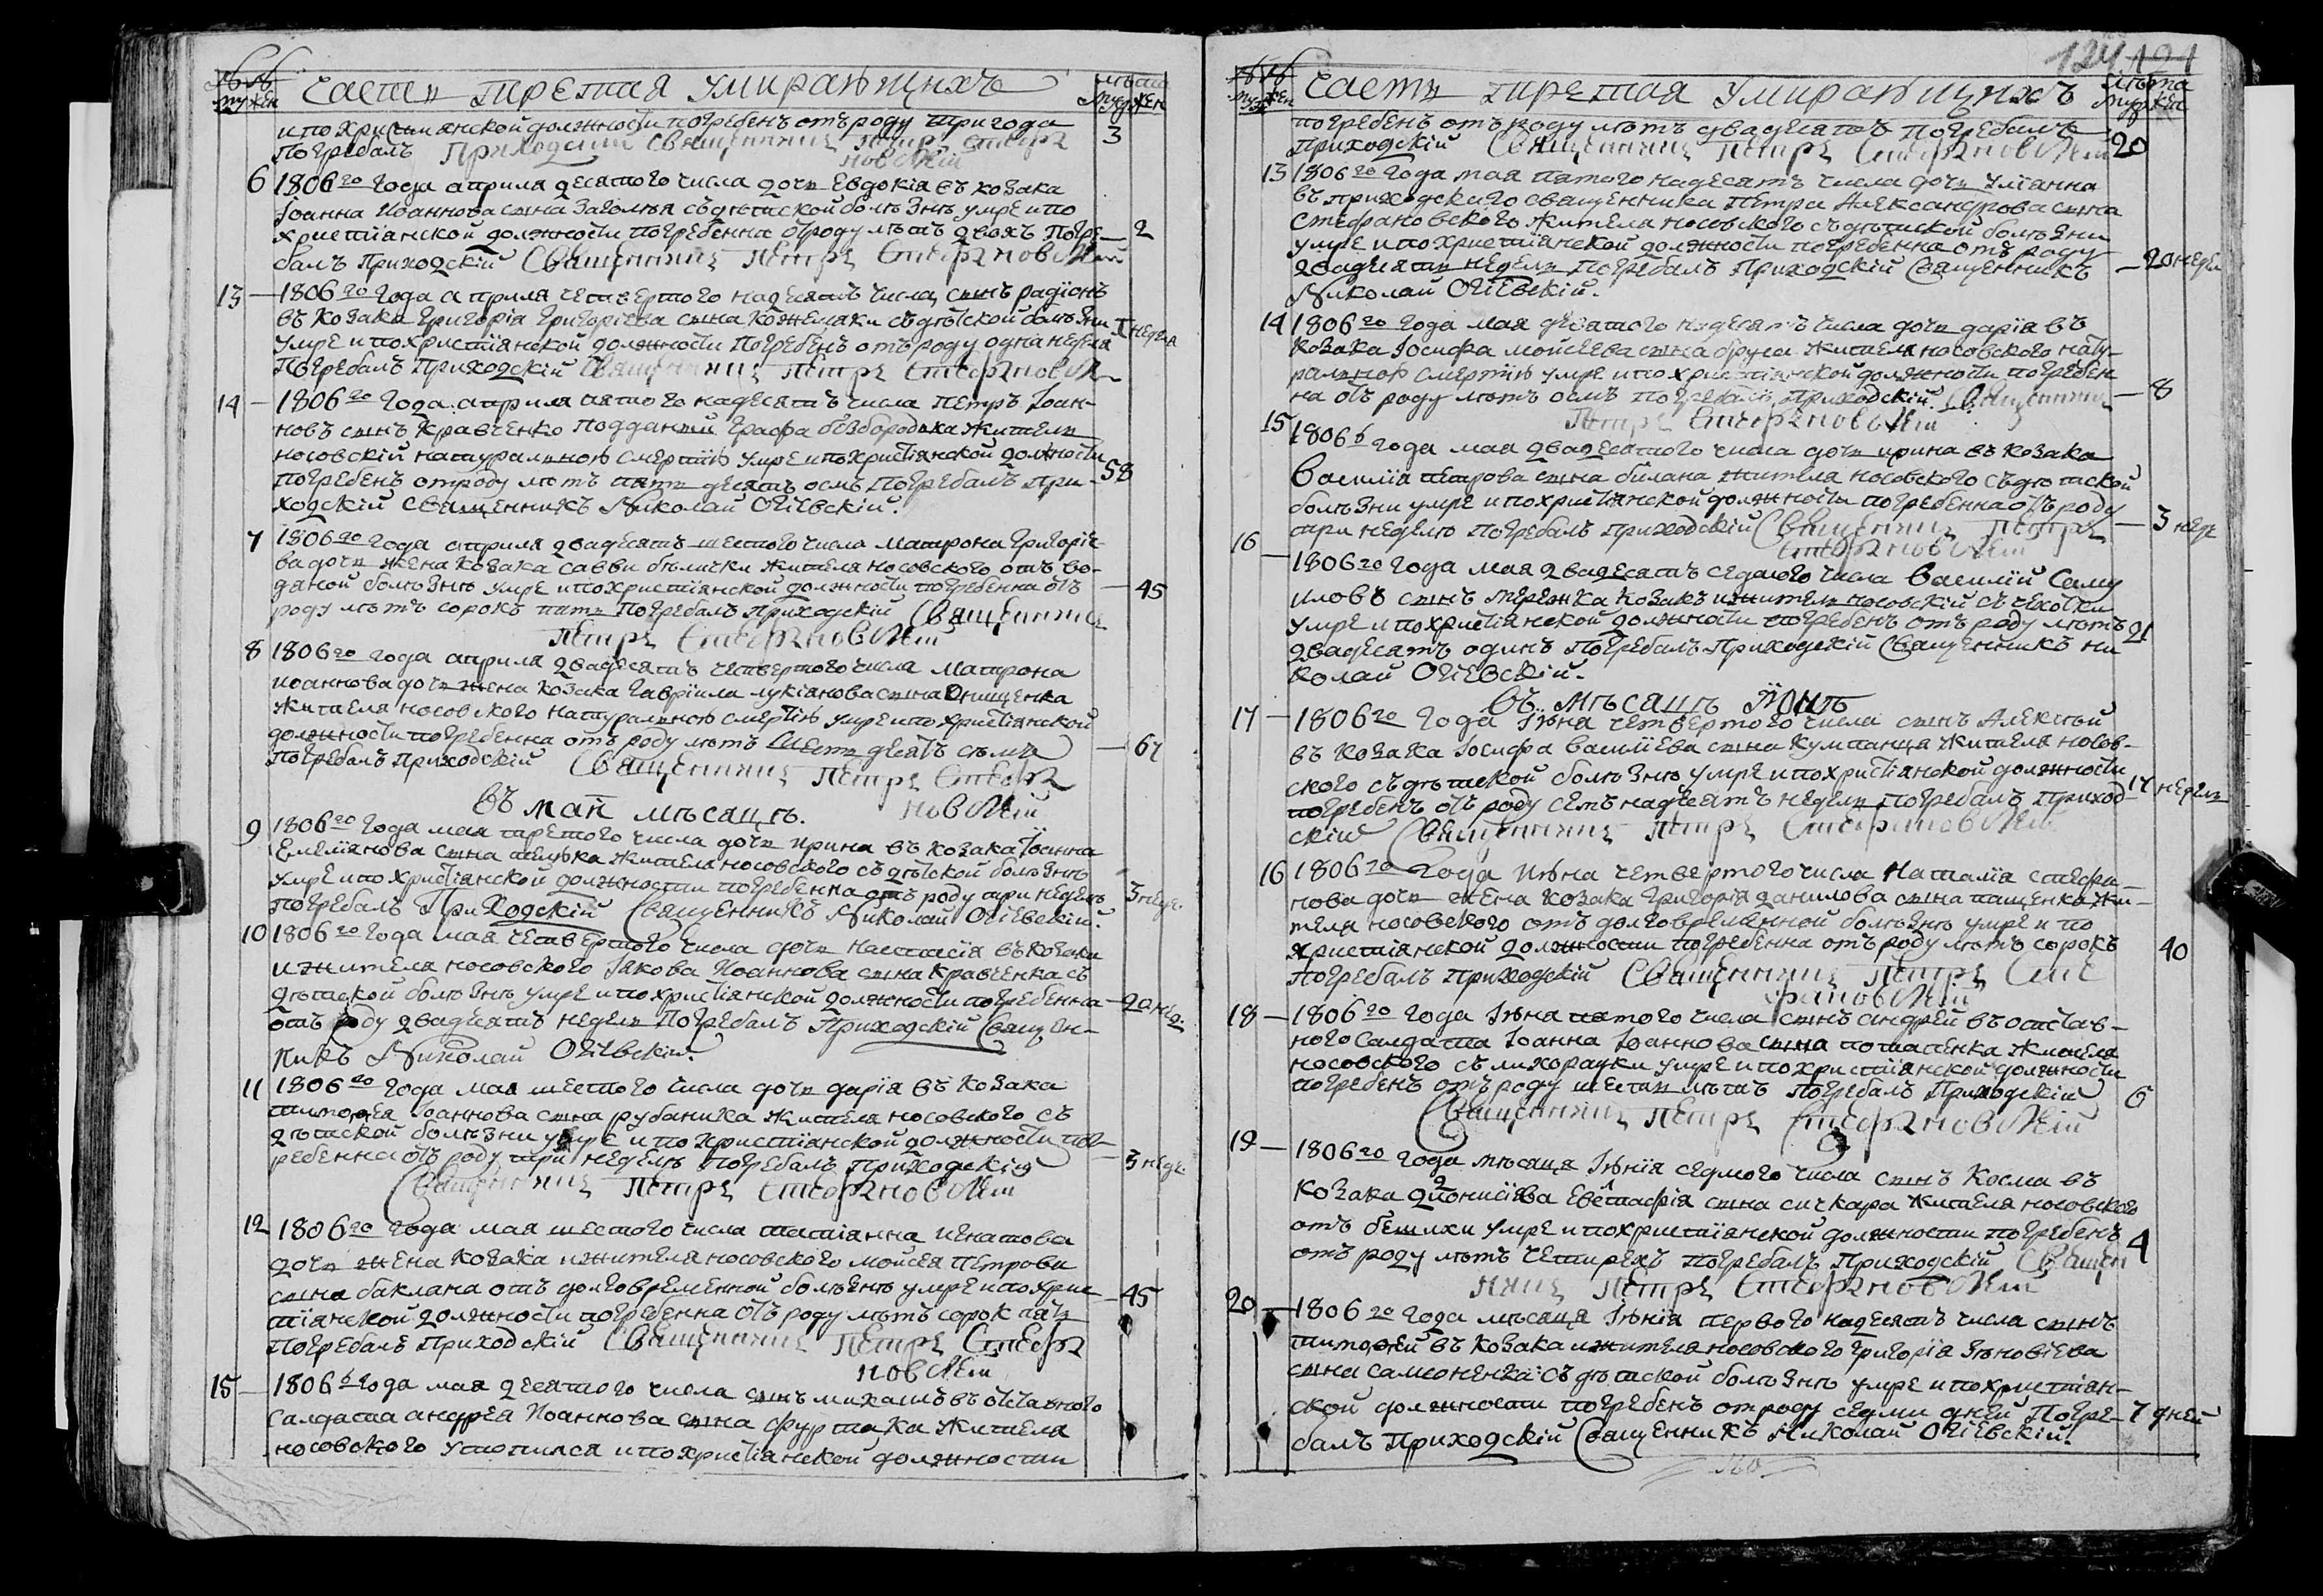 № №
муж жен
Часть третая умираѣющихъ
лѣта
муж жен
и по християнской должности погребенъ отъ роду три года
3
погребалъ Приходскій Священникъ Петръ Стефа
новскій
6 1806го года априля десятого числа дочь Евдокія въ козака
Іоанна Иоаннова сына Заголия съ дѣтской болѣзнѣ умре и по
християнской должности погребенна отроду лѣтъ двохъ погре
2
балъ Приходскій Священникъ Петръ Стефановскій
13 1806го года априля четвертого надесять числа сынъ радіонъ
въ козака Григорія Григоріева сына Кожемяки съ дѣтской болѣзни
1 неделя
умре и по християнской должности погребенъ отъ роду одна неделя
погребалъ Приходскій Священникъ Петръ Стефановскій
14 1806го года априля пятого надесять числа Петръ Іоан-
новъ сынъ Кравченко подданый графа безбородька житель
носовскій натуралною смертию умре и по христіянской должности
58
погребенъ отроду лѣтъ пять десятъ осмъ погребалъ при-
ходскій Священникъ Николай Огіевскій.
7 1806го года априля двадесять шестого числа Матрона Григоріе-
ва дочь жена козака саввы белички жителя носовского отъ во-
дяной болѣзнѣ умре и по християнской должности погребенна отъ
45
роду лѣтъ сорокъ пять погребалъ приходскій Священникъ
Петръ Стефановскій
8 1806го года априля двадесять четвертого числа Матрона
иоаннова дочь жена козака гавріила лукіанова сына Онищенка
жителя носовского натуралною смертію умре и по християнской
должности погребенна отъ роду лѣтъ шесть десятъ семъ
67
погребалъ приходскій Священникъ Петръ Стефа
новскій
въ маи мѣсацѣ.
9 1806го года мая третого числа дочь ирина въ козака Іоанна
Емеліянова сына жителя носовского съ дѣтской болѣзнѣ
умре и по христіянской должности погребенна отъ роду три недель
3 неде.
погребалъ Приходскій Священникъ Николай Огіевскій.
10 1806го года мая четвертого числа дочь настасія въ козака
и жителя носовского Іакова Иоаннова сына кравченка съ
дѣтской болѣзнѣ умре и по христіянской должности погребенна
20 нед.
отъ роду двадесять недель погребалъ Приходскій Священ-
никъ Николай Огіевскій.
11 1806го года мая шестого числа дочь дарія въ козака
тимофея Іоаннова сына рубаника жителя носовского съ
дѣтской болѣзни умре и по християнской должности пог-
ребенна отъ роду три неделѣ погребалъ приходскій
3 неде.
Священникъ Петръ Стефановскій
12 1806го года мая шестого числа татіянна игнатова
дочь жена козака и жителя носовского мойсея петрова
сына баклана отъ долговременной болѣзнѣ умре и по хрис
45
тіянской должности погребенна отъ роду лѣтъ сорок пять
погребалъ Приходскій Священникъ Петръ Стефа
новскій
15 1806го года мая десятого числа сынъ михаилъ въ отставного
салдата андрея Иоаннова сына фуртака жителя
носовского утопился и по христіянской должности
124 121
№ №
муж жен
Часть третая умираѣющихъ
лѣта
муж жен
погребенъ отъ роду лѣтъ двадесять погребалъ
20
Приходскій Священникъ Петръ Стефановскій
13 1806го года мая пятого надесять числа дочь улянна
въ приходского священника Петра Александрова сына
Стефановского жителя носовского съ дѣтской болѣзни
умре и по христіянской должности погребенна отъ роду
20 недел
двадесять недель погребалъ Приходскій Священникъ
Николай Огіевскій.
14 1806го года мая десятого надесять числа дочь дарія въ
козака Іосифа мойсеева сына жителя носовского нату-
ралною смертію умре и по христіянской должности погребен
8
на отъ роду лѣтъ осмъ погребалъ Приходскій Священникъ
Петръ Стефановскій
15 1806го года мая двадесятого числа дочь ирина въ козака
Василія петрова сына билана жителя носовского съ дѣтской
болѣзни умре и по христіянской должности погребенна отъ роду
три неделю погребалъ приходскій Священникъ Петръ
3 неде
Стефановскій
16 1806го года мая двадесять седмого числа Василій Саму
иловъ сынъ мережка козакъ и житель носовскій съ чехотки
умре и по христіянской должности погребенъ отъ роду лѣтъ
21
двадесять одинъ погребалъ Приходскій Священникъ ни
колай Огіевскій.
въ мѣсацѣ Юнѣ
17 1806го года Іюня четвертого числа сынъ Алексѣй
въ козака Іосифа василіева сына Кумпанца жителя носов-
ского съ дѣтской болѣзнѣ умре и по христіянской должности
17 недель
погребенъ отъ роду семънадцеять недель погребалъ приход
скій Священникъ Петръ Стефановскій
16 1806го года Июня четвертого числа Наталія стефа-
нова дочь жена козака Григорія данилова сына пащенка жи-
теля носовского отъ долговременной болѣзнѣ умре и по
християнской должности погребенна отъ роду лѣтъ сорокъ
40
погребалъ приходскій Священникъ Петръ Сте
фановскій
18 1806го года Іюня пятого числа сынъ андрей въ отстав-
ного салдата Іоанна Іоаннова сына потапенка жителя
носовского съ лихорадки умре и по християнской должности
погребенъ отъ роду шести лѣтъ погребалъ Приходскій
6
Священникъ Петръ Стефановскій
19 1806го года мѣсяца Іюнія седмого числа сынъ Косма въ
козака діонисіева Евстафія сына сичкара жителя носовского
отъ бешихи умре и по христіянской должности погребенъ
4
отъ роду лѣтъ четырехъ погребалъ Приходскій Священ
никъ Петръ Стефановскій
20 1806го года мѣсяца Іюнія первого надесять числа сынъ
тимофей въ козака и жителя носовского Григорія Зѣновіева
сына самсоненка съ дѣтской болѣзнѣ умре и по христіян-
ской должности погребенъ отроду седми дней Погре-
7 дней
балъ Приходскій Священникъ Николай Огіевскій.